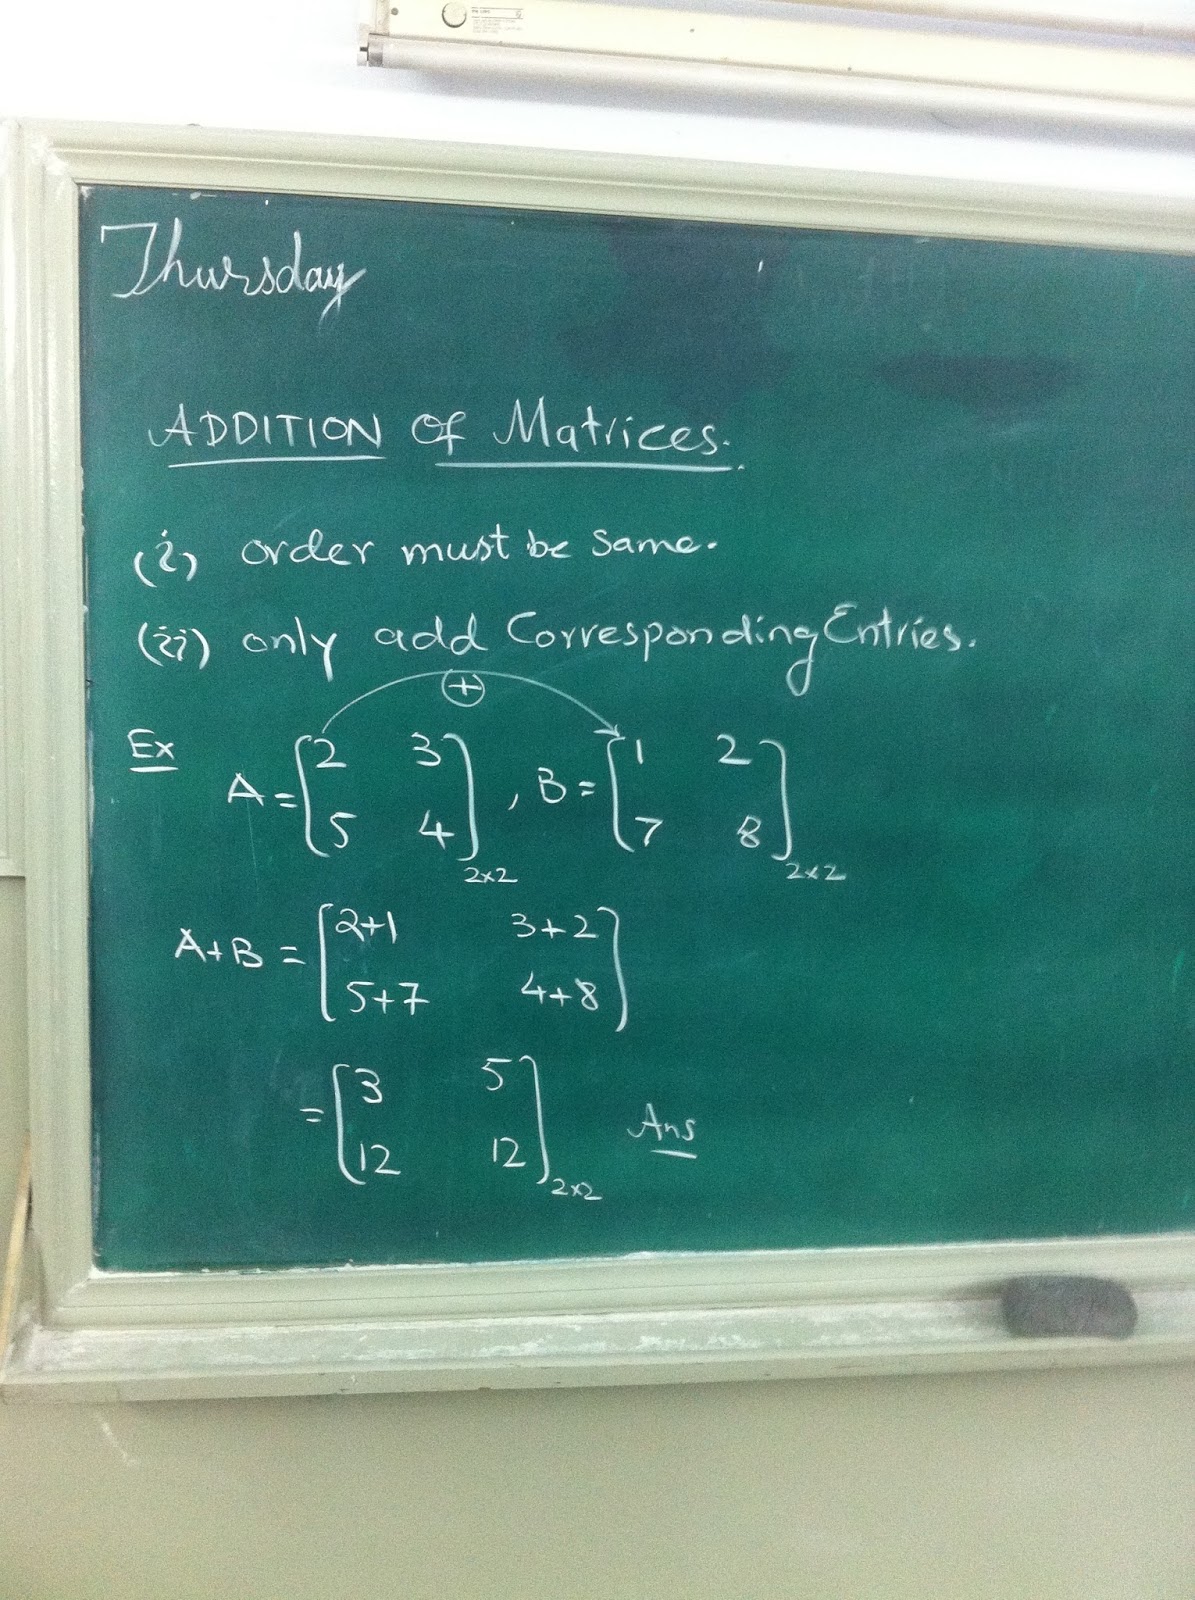 Thursday
ADDITION of Matrices.
(i) order must be same.
(ii) only add Corresponding Entries.
+
Ex A = [2 3
5 4]2×2 , B = [1 2
7 8]2×2
A+B = [2+1 3+2
5+7 4+8]
= [3 5
12 12]2×2 Ans